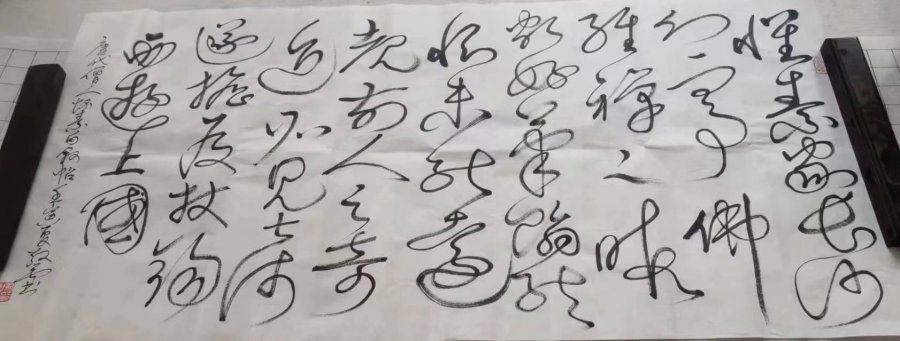 懷素家長沙
幼而事佛
經禪之暇
頗好筆翰然
恨未能遠
覩前人之奇
迹所見甚淺
遂擔笈杖錫
西遊上國
唐代僧人懷素自叙帖